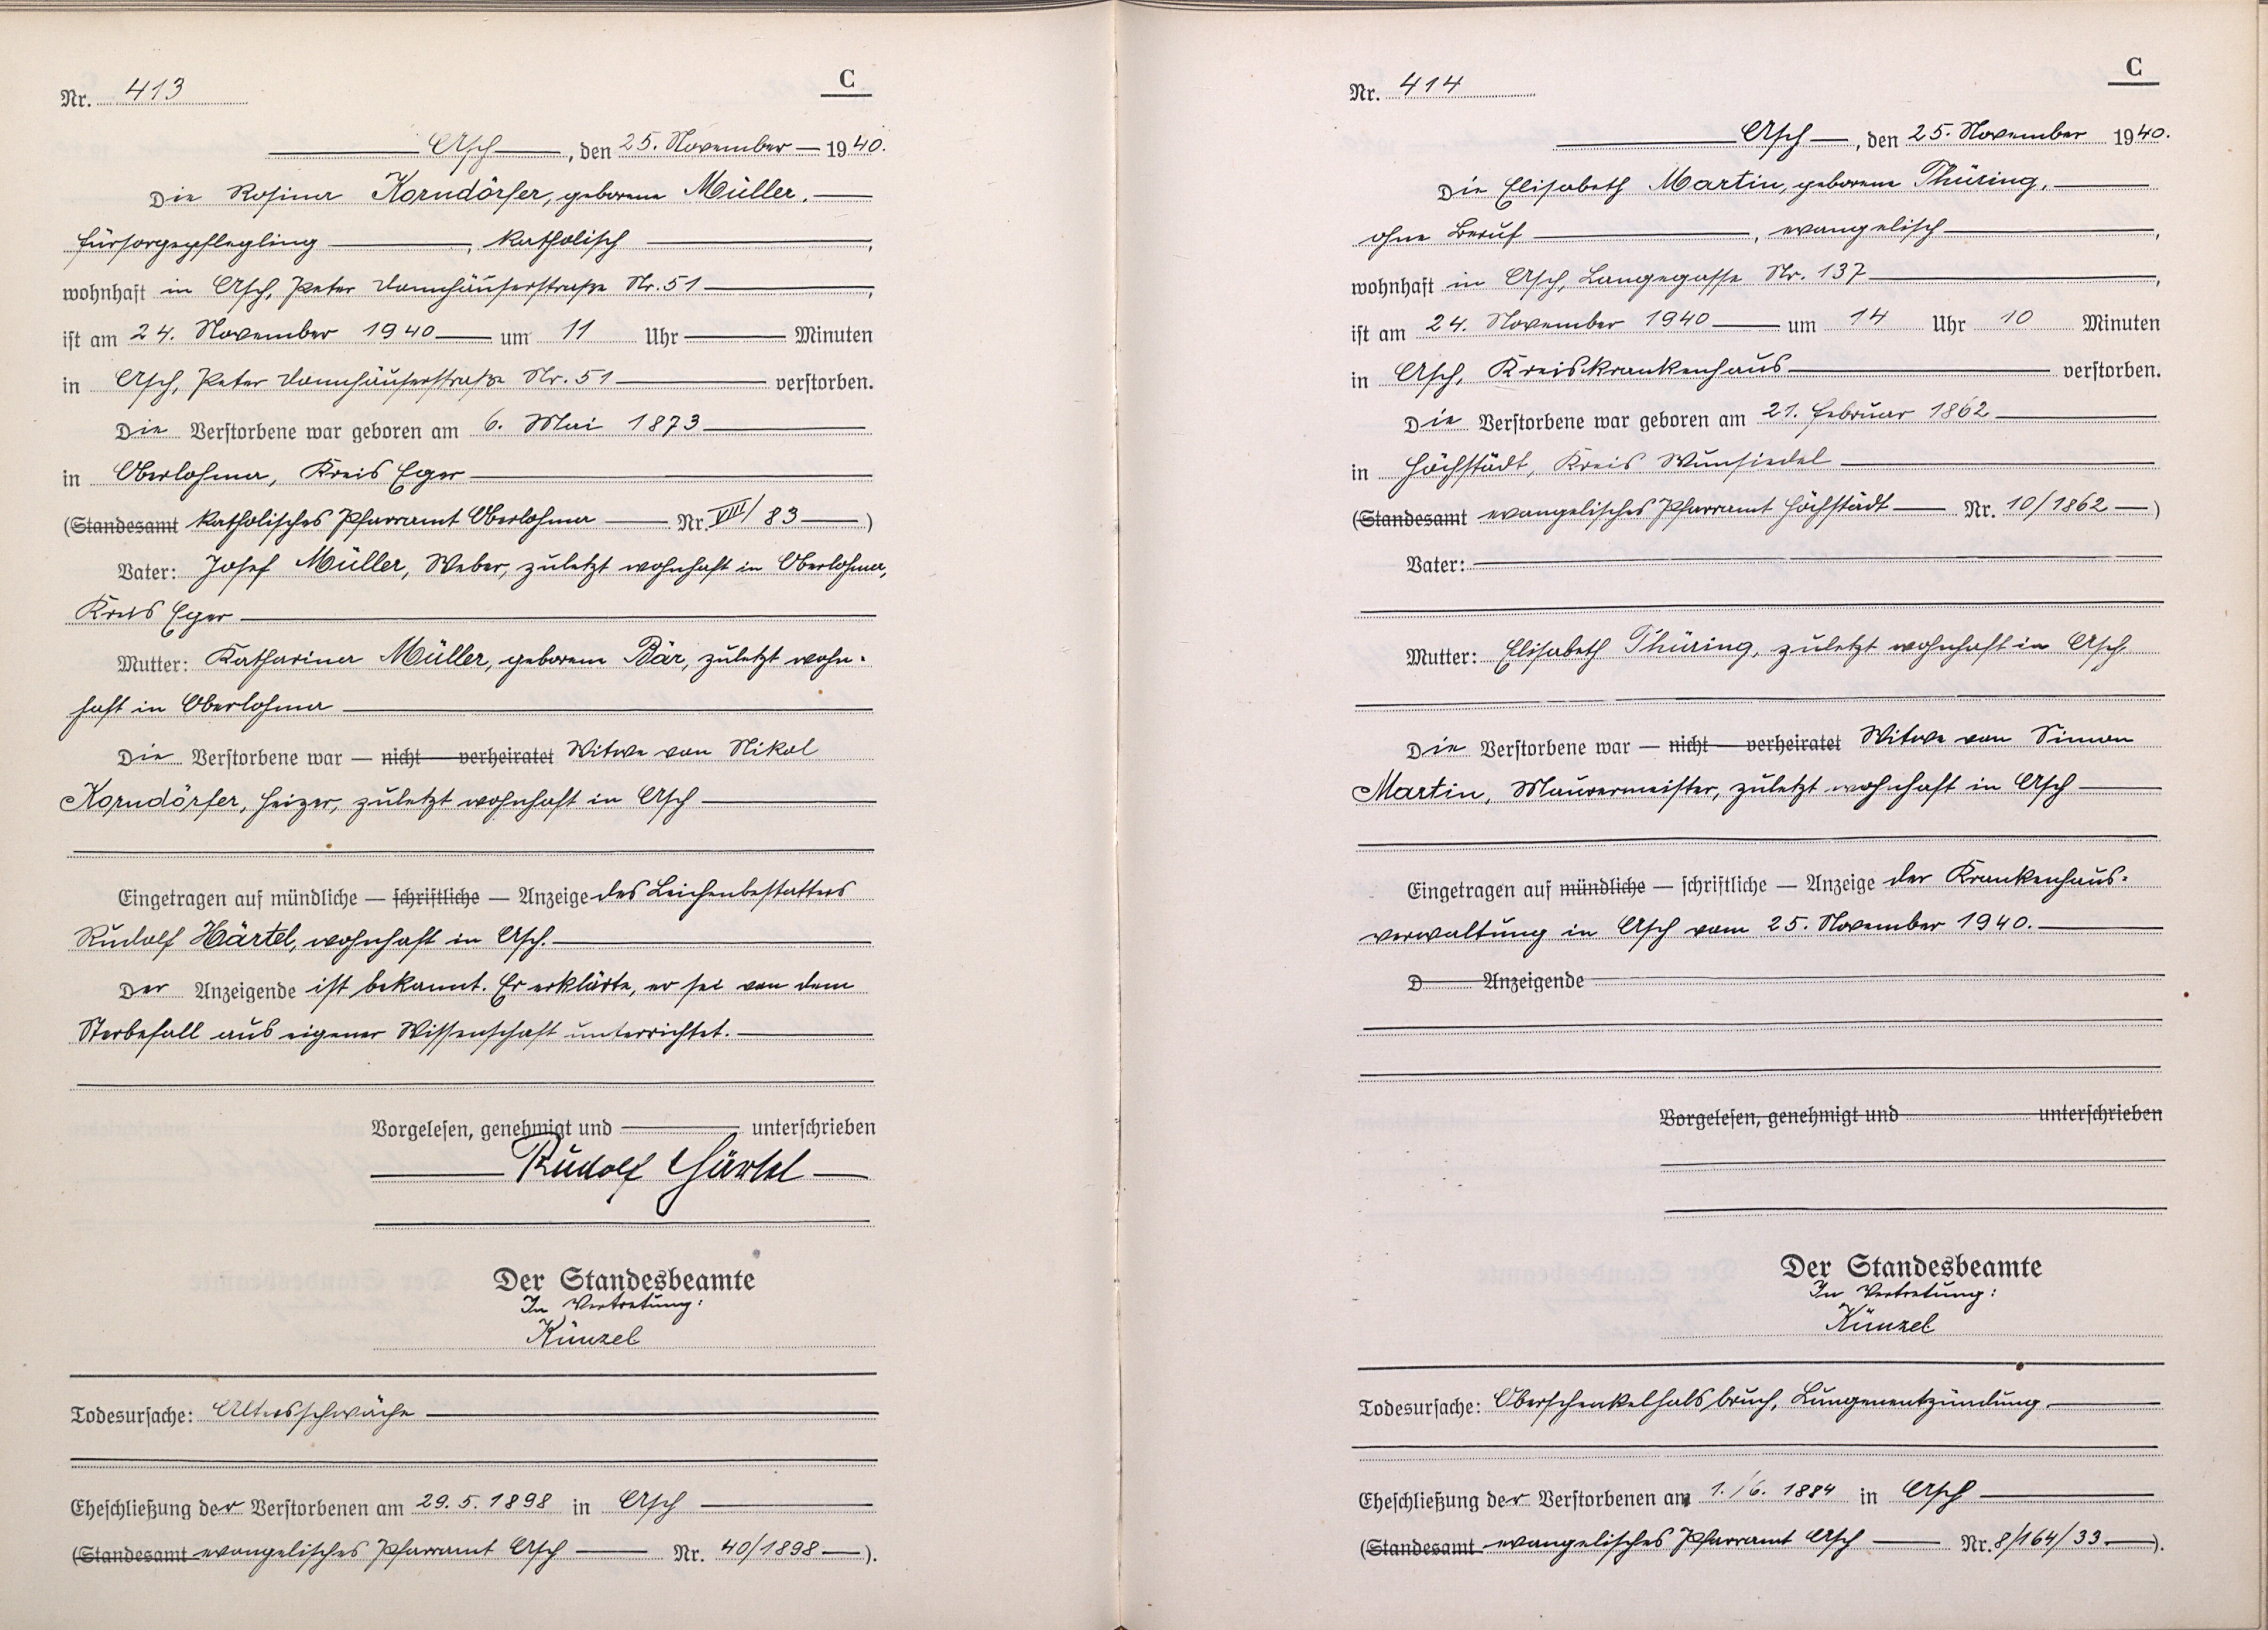 C
Nr. 413
Asch, den 25. November 1940.
Die Rosina Korndörfer, geborene Müller,
Fürsorgepflegling, katholisch,
wohnhaft in Asch, Peter Donnhäuserstraße Nr. 51,
ist am 24. November 1940 um 11 Uhr Minuten
in Asch, Peter Donnhäuserstraße Nr. 51 verstorben.
Die Verstorbene war geboren am 6. Mai 1873
in Oberlohma, Kreis Eger
(Standesamt katholisches Pfarramt Oberlohma Nr. VIII/83)
Vater: Josef Müller, Weber, zuletzt wohnhaft in Oberlohma,
Kreis Eger
Mutter: Katharina Müller, geborene Bär, zuletzt wohn-
haft in Oberlohma
Die Verstorbene war — nicht — verheiratet Witwe von Nikol
Korndörfer, Heizer, zuletzt wohnhaft in Asch
Eingetragen auf mündliche — schriftliche — Anzeige des Leichenbestatters
Rudolf Härtel, wohnhaft in Asch.
Der Anzeigende ist bekannt. Er erklärte, er sei von dem
Sterbefall aus eigener Wissenschaft unterrichtet.
Vorgelesen, genehmigt und unterschrieben
Rudolf Härtel
Der Standesbeamte
In Vertretung:
Künzel
Todesursache: Altersschwäche
Eheschließung der Verstorbenen am 29.5.1898 in Asch
(Standesamt evangelisches Pfarramt Asch Nr. 40/1898).
C
Nr. 414
Asch, den 25. November 1940.
Die Elisabeth Martin, geborene Thüring,
ohne Beruf, evangelisch,
wohnhaft in Asch, Langegasse Nr. 137,
ist am 24. November 1940 um 14 Uhr 10 Minuten
in Asch, Kreiskrankenhaus verstorben.
Die Verstorbene war geboren am 21. Februar 1862
in Höchstädt, Kreis Wunsiedel
(Standesamt evangelisches Pfarramt Höchstädt Nr. 10/1862)
Vater:
Mutter: Elisabeth Thüring, zuletzt wohnhaft in Asch
Die Verstorbene war — nicht — verheiratet Witwe von Simon
Martin, Maurermeister, zuletzt wohnhaft in Asch
Eingetragen auf mündliche — schriftliche — Anzeige der Krankenhaus-
verwaltung in Asch vom 25. November 1940.
D Anzeigende
Vorgelesen, genehmigt und unterschrieben
Der Standesbeamte
In Vertretung:
Künzel
Todesursache: Oberschenkelhalsbruch, Lungenentzündung
Eheschließung der Verstorbenen am 1./6. 1884 in Asch
(Standesamt evangelisches Pfarramt Asch Nr. 8/164/33).